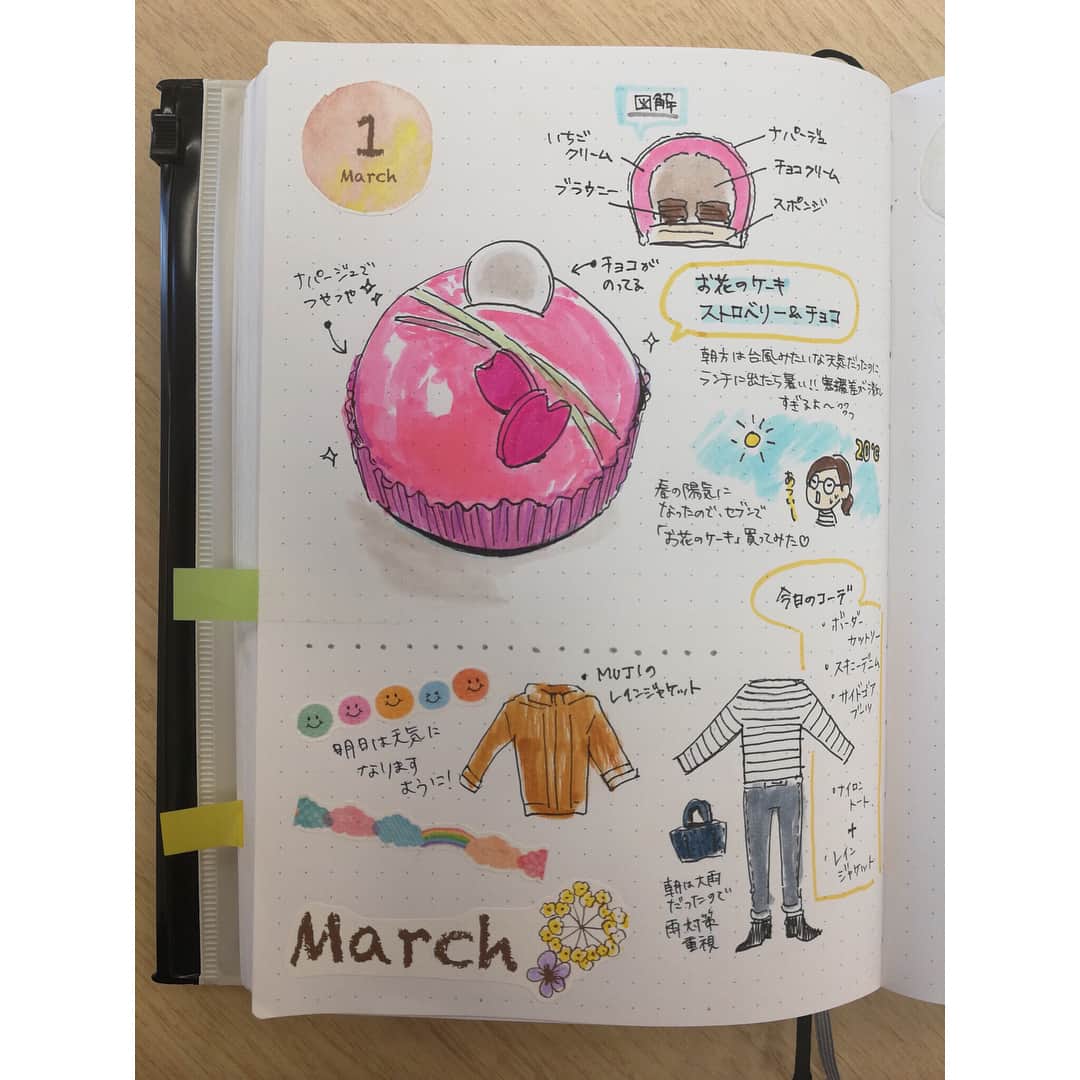 1
March
図解
いちご
クリーム
ブラウニー
ナパージュ
チョコクリーム
スポンジ
ナパージュで
つやつや
チョコが
のってる
お花のケーキ
ストロベリー&チョコ
朝方は台風みたいな天気だったのに
ランチに出たら暑い!! 寒暖差が激し
すぎるよ〜
20℃
あつい〜
春の陽気に
なったので、セブンで
「お花のケーキ」買ってみた♡
今日のコーデ
・ボーダー
カットソー
・スキニーデニム
・サイドゴア
ブーツ
・ナイロン
トート
+
・レイン
ジャケット
・MUJIの
レインジャケット
明日は天気に
なります
ように!
朝は大雨
だったので
雨対策
重視
March